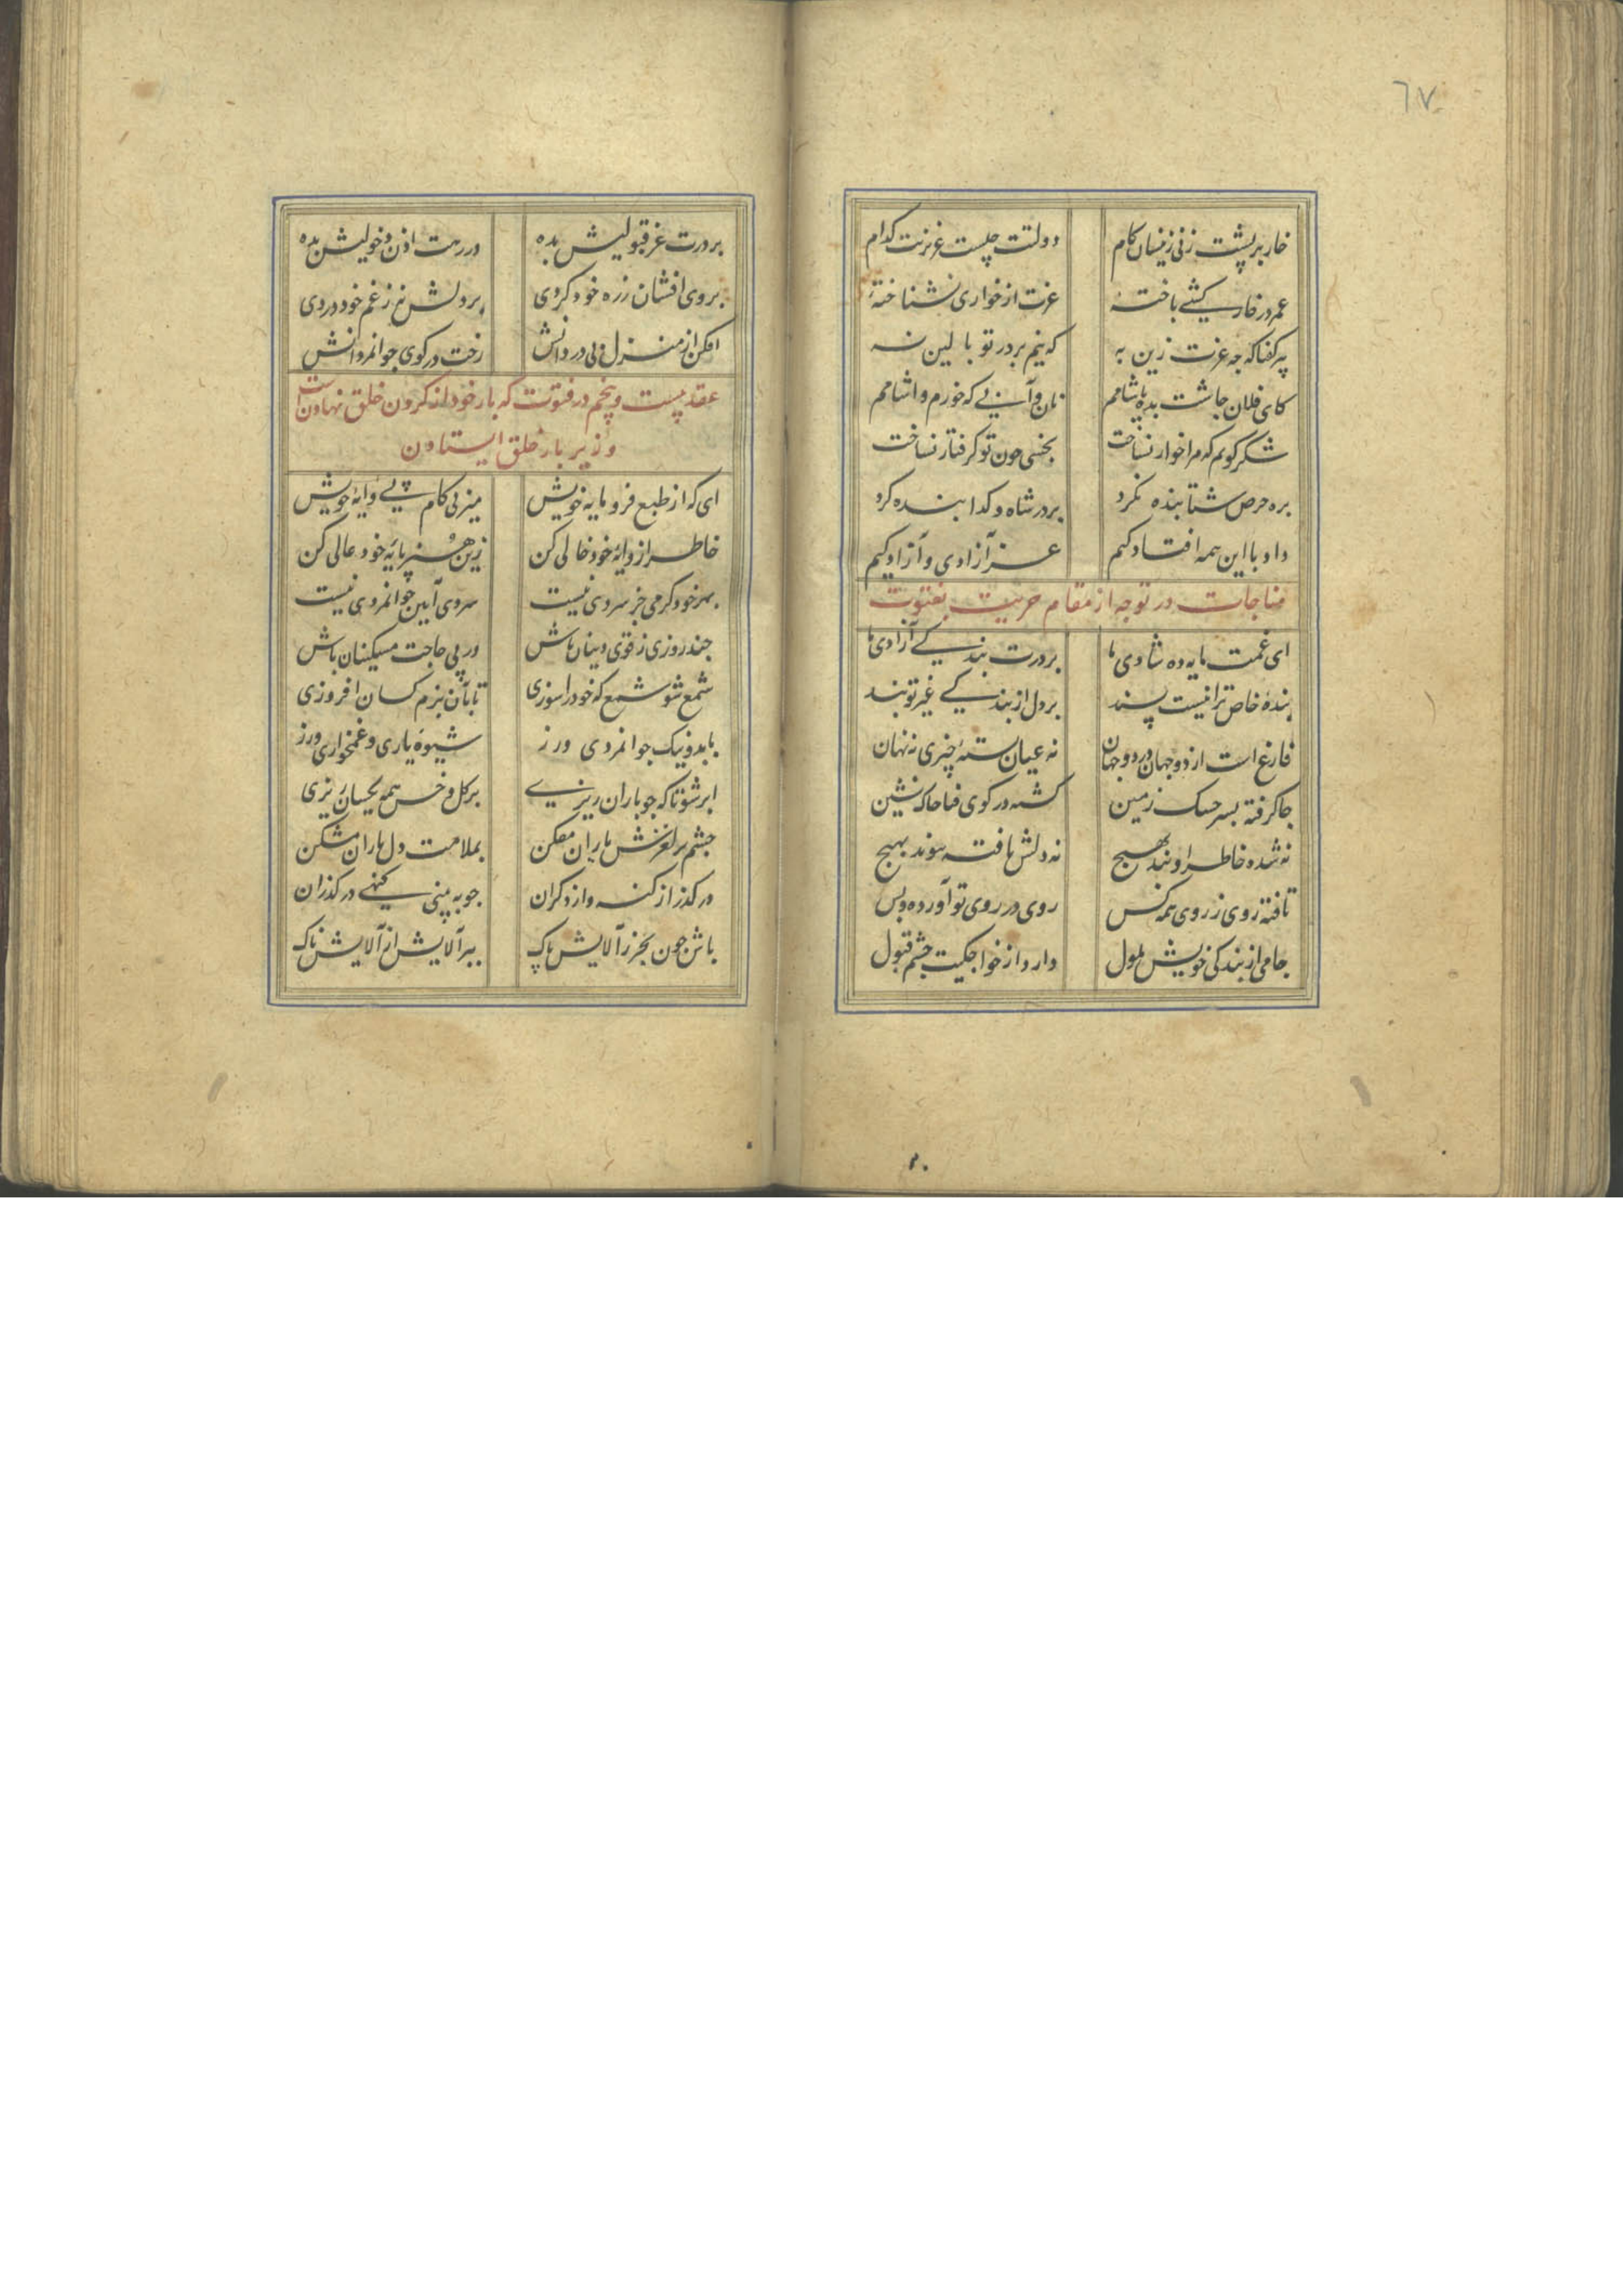 ٦٧
خار بر پشت زنی زینسان کام دولتت چیست عزیزیت کدام
عمر در خار کشی باخته عزت از خواری نشناخته
پیر گفتا که چه عزت زین به که نیم بر در تو بالین نه
کای فلان چاشت بده یا شامم نان و آبی که خورم و آشامم
شکر گویم که مرا خوار نساخت بخسی چون تو گرفتار نساخت
بره حرص شتابنده نکرد بر در شاه و گدا بنده نکرد
داد با این همه افتادگیم عز آزادی و آزادگیم
مناجات در توجه از مقام حریت بفتوت
ای غمت مایه ده شادی ها بر درت بندگی آزادی ها
بنده خاص ترا نیست پسند بر دل از بندگی غیر تو بند
فارغ است از دو جهان در دو جهان نه عیان بسته چیزی نه نهان
جا گرفته بسر خشک زمین گشته در کوی فنا خاک نشین
نه شده خاطر او بند بهیچ نه دلش یافته پیوند بهیچ
تافته روی ز روی همه کس روی در روی تو آورده و بس
جامی از بندگی خویش ملول دارد از خواجگیت چشم قبول
بر درت عز قبولیش بده در رهت اذن دخولیش بده
بر وی افشان ز ره خود گردی بر دلش نه ز غم خود دردی
افکن از منزل بی دردانش رخت در کوی جوانمردانش
عقد بیست و پنجم در فتوت که بار خود از گردن خلق نهادنست
و زیر بار خلق ایستادن
ای که از طبع فرومایه خویش میزنی گام پی وایه خویش
خاطر از وایه خود خالی کن زین هنر پایه خود عالی کن
بهر خود گرمی جز سردی نیست سردی آیین جوانمردی نیست
چند روزی ز قوی دینان باش در پی حاجت مسکینان باش
شمع شو شمع که خود را سوزی تا بآن بزم کسان افروزی
با بد و نیک جوانمردی ورز شیوه یاری و غمخواری ورز
ابر شو تا که چو باران ریزی بر گل و خس همه یکسان ریزی
چشم بر لغزش یاران مفکن بملامت دل یاران مشکن
در گذر از گنه و از دگران چو به بینی گنهی در گذران
باش چون بحر ز آلایش پاک ببر آلایش از آلایش ناک